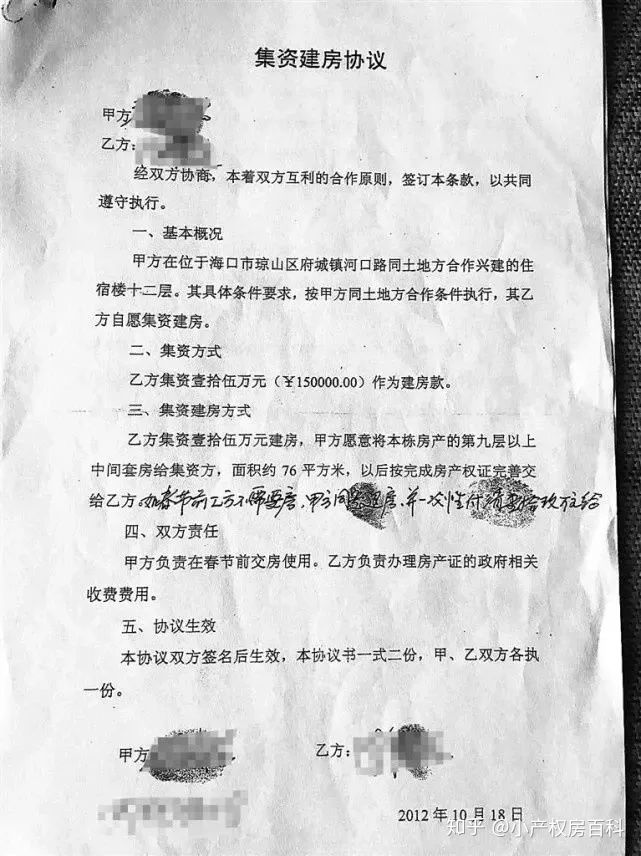 集资建房协议
甲方
乙方:
经双方协商，本着双方互利的合作原则，签订本条款，以共同
遵守执行。
一、基本概况
甲方在位于海口市琼山区府城镇河口路同土地方合作兴建的住
宿楼十二层。其具体条件要求，按甲方同土地方合作条件执行，其乙
方自愿集资建房。
二、集资方式
乙方集资壹拾伍万元（￥150000.00）作为建房款。
三、集资建房方式
乙方集资壹拾伍万元建房，甲方愿意将本栋房产的第九层以上
中间套房给集资方，面积约 76 平方米，以后按完成房产权证完善交
给乙方。如春节前乙方不需要房，甲方同 退房，并一次性付清 给
四、双方责任
甲方负责在春节前交房使用。乙方负责办理房产证的政府相关
收费费用。
五、协议生效
本协议双方签名后生效，本协议书一式二份，甲、乙双方各执
一份。
甲方
乙方:
2012 年 10 月 18 日
知乎 @小产权房百科